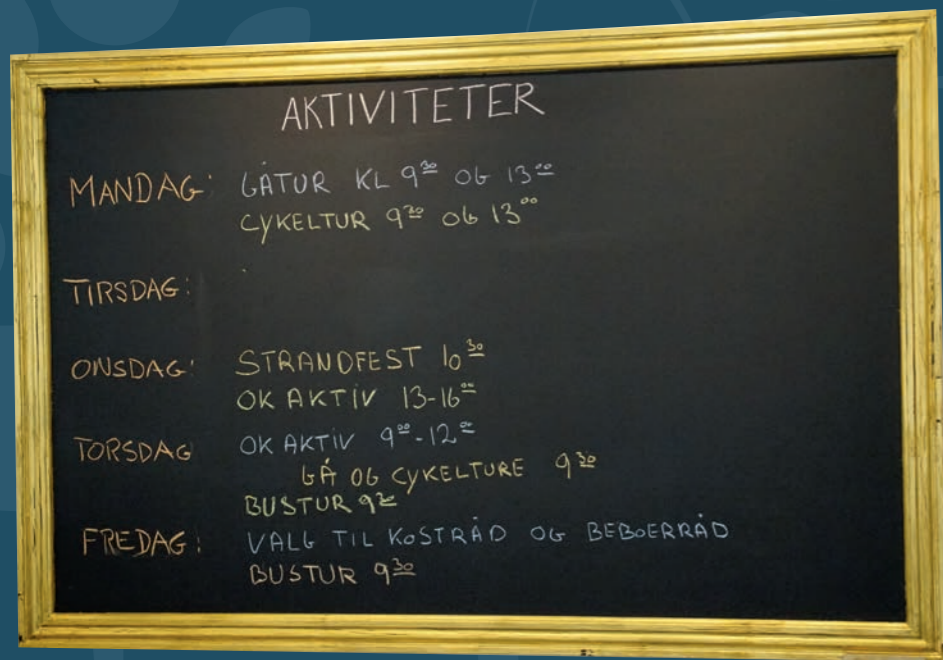 AKTIVITETER
MANDAG: GÅTUR KL 9³⁰ OG 13⁰⁰
CYKELTUR 9³⁰ OG 13⁰⁰
TIRSDAG:
ONSDAG: STRANDFEST 10³⁰
OK AKTIV 13-16⁰⁰
TORSDAG OK AKTIV 9⁰⁰-12⁰⁰
GÅ OG CYKELTURE 9³⁰
BUSTUR 9³⁰
FREDAG: VALG TIL KOSTRÅD OG BEBOERRÅD
BUSTUR 9³⁰